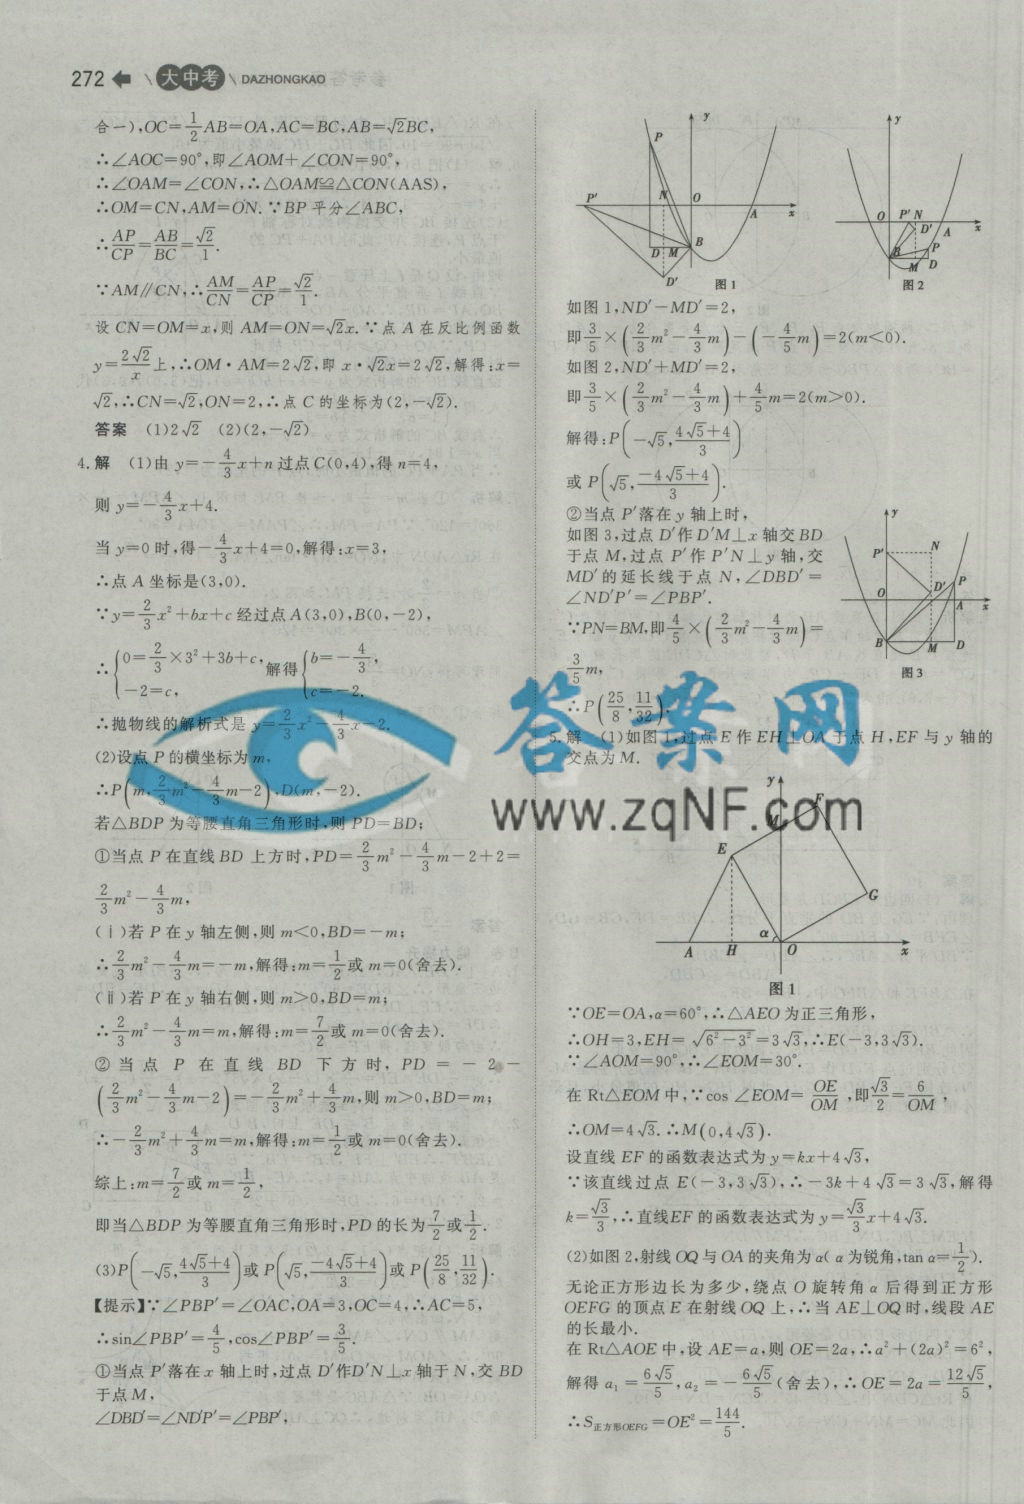 272 大中考 DAZHONGKAO
合一),OC=1/2AB=OA,AC=BC,AB=√2BC,
∴∠AOC=90°,即∠AOM+∠CON=90°,
∴∠OAM=∠CON,∴△OAM≌△CON(AAS),
∴OM=CN,AM=ON.∵BP平分∠ABC,
∴AP/CP=AB/BC=√2/1.
∵AM∥CN,∴AM/CN=AP/CP=√2/1.
设CN=OM=x,则AM=ON=√2x.∵点A在反比例函数
y=2√2/x上,∴OM·AM=2√2,即x·√2x=2√2,解得:x=
√2,∴CN=√2,ON=2,∴点C的坐标为(2,-√2).
答案 (1)2√2 (2)(2,-√2)
4.解 (1)由y=-4/3x+n过点C(0,4),得n=4,
则y=-4/3x+4.
当y=0时,得-4/3x+4=0,解得:x=3,
∴点A坐标是(3,0).
∵y=2/3x²+bx+c经过点A(3,0),B(0,-2),
∴{0=2/3×3²+3b+c, -2=c, 解得{b=-4/3, c=-2.
∴抛物线的解析式是y=2/3x²-4/3x-2.
(2)设点P的横坐标为m,
∴P(m,2/3m²-4/3m-2),D(m,-2).
若△BDP为等腰直角三角形时,则PD=BD;
①当点P在直线BD上方时,PD=2/3m²-4/3m-2+2=
2/3m²-4/3m,
(ⅰ)若P在y轴左侧,则m<0,BD=-m;
∴2/3m²-4/3m=-m,解得:m=1/2或m=0(舍去).
(ⅱ)若P在y轴右侧,则m>0,BD=m;
∴2/3m²-4/3m=m,解得:m=7/2或m=0(舍去).
②当点P在直线BD下方时,PD=-2-
(2/3m²-4/3m-2)=-2/3m²+4/3m,则m>0,BD=m;
∴-2/3m²+4/3m=m,解得:m=1/2或m=0(舍去).
综上:m=7/2或m=1/2,
即当△BDP为等腰直角三角形时,PD的长为7/2或1/2.
(3)P(-√5,4√5+4/3)或P(√5,-4√5+4/3)或P(25/8,11/32).
【提示】∵∠PBP′=∠OAC,OA=3,OC=4,∴AC=5,
∴sin∠PBP′=4/5,cos∠PBP′=3/5.
①当点P′落在x轴上时,过点D′作D′N⊥x轴于N,交BD
于点M,
∠DBD′=∠ND′P′=∠PBP′,
y
P
P′ N O A x
D M B
D′
图1
y
O P′ N D′ A x
B P M D
图2
如图1,ND′-MD′=2,
即3/5×(2/3m²-4/3m)-(-4/5m)=2(m<0).
如图2,ND′+MD′=2,
即3/5×(2/3m²-4/3m)+4/5m=2(m>0).
解得:P(-√5,4√5+4/3)
或P(√5,-4√5+4/3).
②当点P′落在y轴上时,
如图3,过点D′作D′M⊥x轴交BD
于点M,过点P′作P′N⊥y轴,交
MD′的延长线于点N,∠DBD′=
∠ND′P′=∠PBP′.
∵PN=BM,即4/5×(2/3m²-4/3m)=
3/5m,
∴P(25/8,11/32).
y
P′ N
D′ P
O A x
B M D
图3
5.解 (1)如图1,过点E作EH⊥OA于点H,EF与y轴的
交点为M.
答案网
www.zqNF.com
y
M F
E
G
A H α O x
图1
∵OE=OA,α=60°,∴△AEO为正三角形,
∴OH=3,EH=√6²-3²=3√3,∴E(-3,3√3).
∵∠AOM=90°,∴∠EOM=30°.
在Rt△EOM中,∵cos∠EOM=OE/OM,即√3/2=6/OM,
∴OM=4√3.∴M(0,4√3).
设直线EF的函数表达式为y=kx+4√3,
∵该直线过点E(-3,3√3),∴-3k+4√3=3√3,解得
k=√3/3,∴直线EF的函数表达式为y=√3/3x+4√3.
(2)如图2,射线OQ与OA的夹角为α(α为锐角,tan α=1/2).
无论正方形边长为多少,绕点O旋转角α后得到正方形
OEFG的顶点E在射线OQ上,∴当AE⊥OQ时,线段AE
的长最小.
在Rt△AOE中,设AE=a,则OE=2a,∴a²+(2a)²=6²,
解得a₁=6√5/5,a₂=-6√5/5(舍去),∴OE=2a=12√5/5,
∴S正方形OEFG=OE²=144/5.